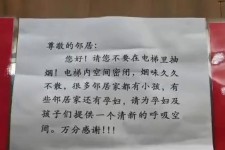 尊敬的邻居:
您好!请您不要在电梯里抽
烟!电梯内空间密闭,烟味久久
不散,很多邻居家都有小孩,有
些邻居家还有孕妇,请为孕妇及
孩子们提供一个清新的呼吸空
间。万分感谢!!!